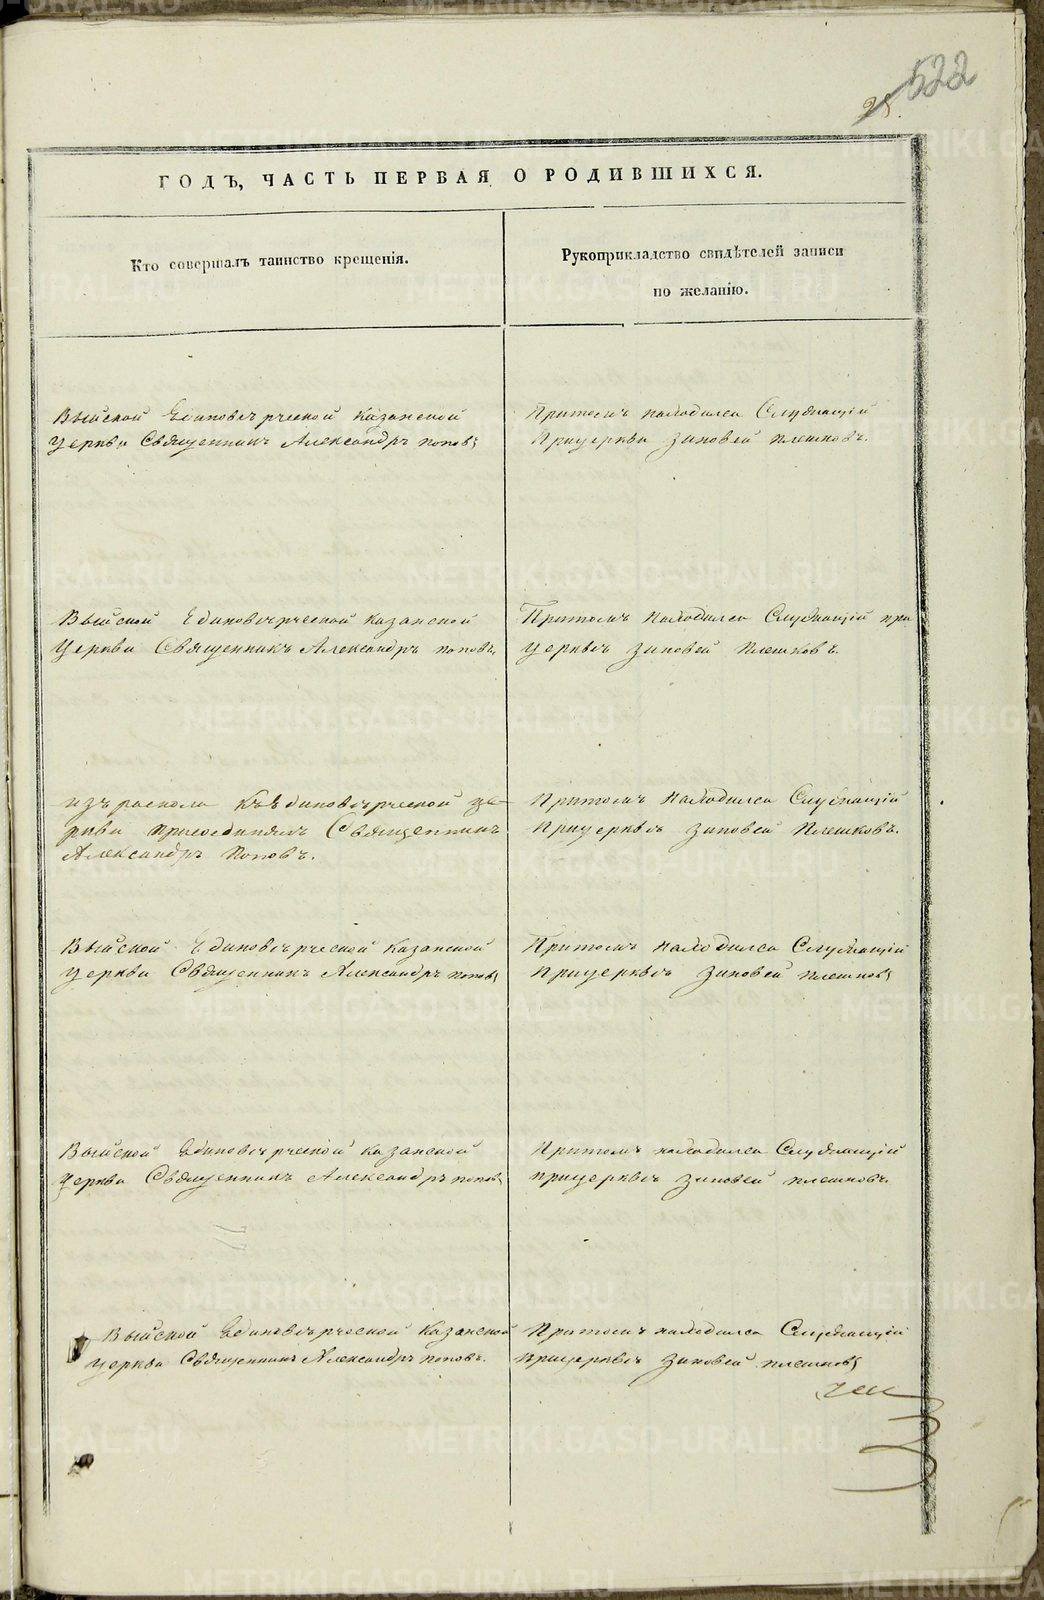 522
25.
ГОДЪ, ЧАСТЬ ПЕРВАЯ О РОДИВШИХСЯ.
Кто совершалъ таинство крещенія.
Рукоприкладство свидѣтелей записи
по желанію.
Выйской Единовѣрческой Казанской
Церкви Священникъ Александръ Поповъ
Притомъ находился Служащій
Прицеркви Зиновей Плешковъ.
Выйской Единовѣрческой Казанской
Церкви Священникъ Александръ Поповъ.
Притомъ находился Служащій при
Церквѣ Зиновей Плешковъ.
Изъ раскола КъЕдиновѣрческой це-
ркви присоединялъ Священникъ
Александръ Поповъ.
Притомъ находился Служащій
Прицерквѣ Зиновей Плешковъ.
Выйской Единовѣрческой Казанской
Церкви Священникъ Александръ Поповъ
Притомъ находился Служащій
Прицерквѣ Зиновей Плешковъ
Выйской Единовѣрческой Казанской
Церкви Священникъ Александръ Поповъ
Притомъ находился Служащій
прицерквѣ Зиновей Плешковъ.
Выйской Единовѣрческой Казанской
Церкви Священникъ Александръ Поповъ.
Притомъ находился Служащій
прицерквѣ Зиновей Плешковъ
METRIKI.GASO-URAL.RU